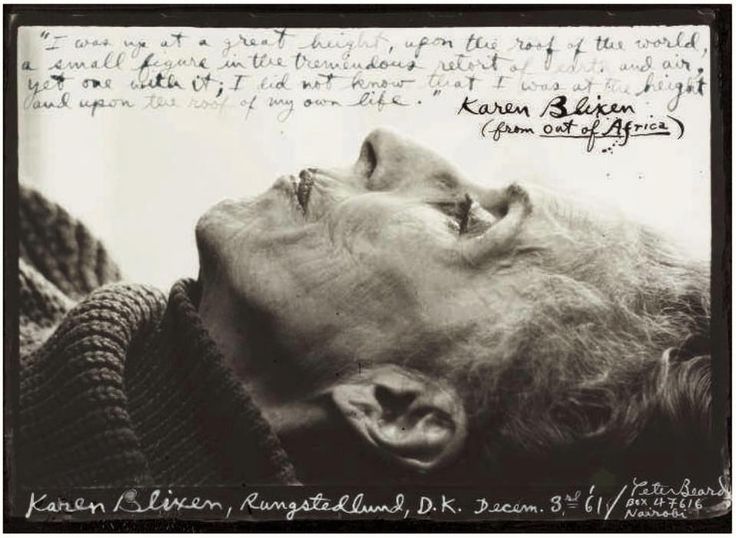 "I was up at a great height, upon the roof of the world,
a small figure in the tremendous retort of earth and air,
yet one with it; I did not know that I was at the height
and upon the roof of my own life."
Karen Blixen
(from out of Africa)
Karen Blixen, Rungstedlund, D.K. Decem. 3rd '61 / Peter Beard
Box 47616
Nairobi